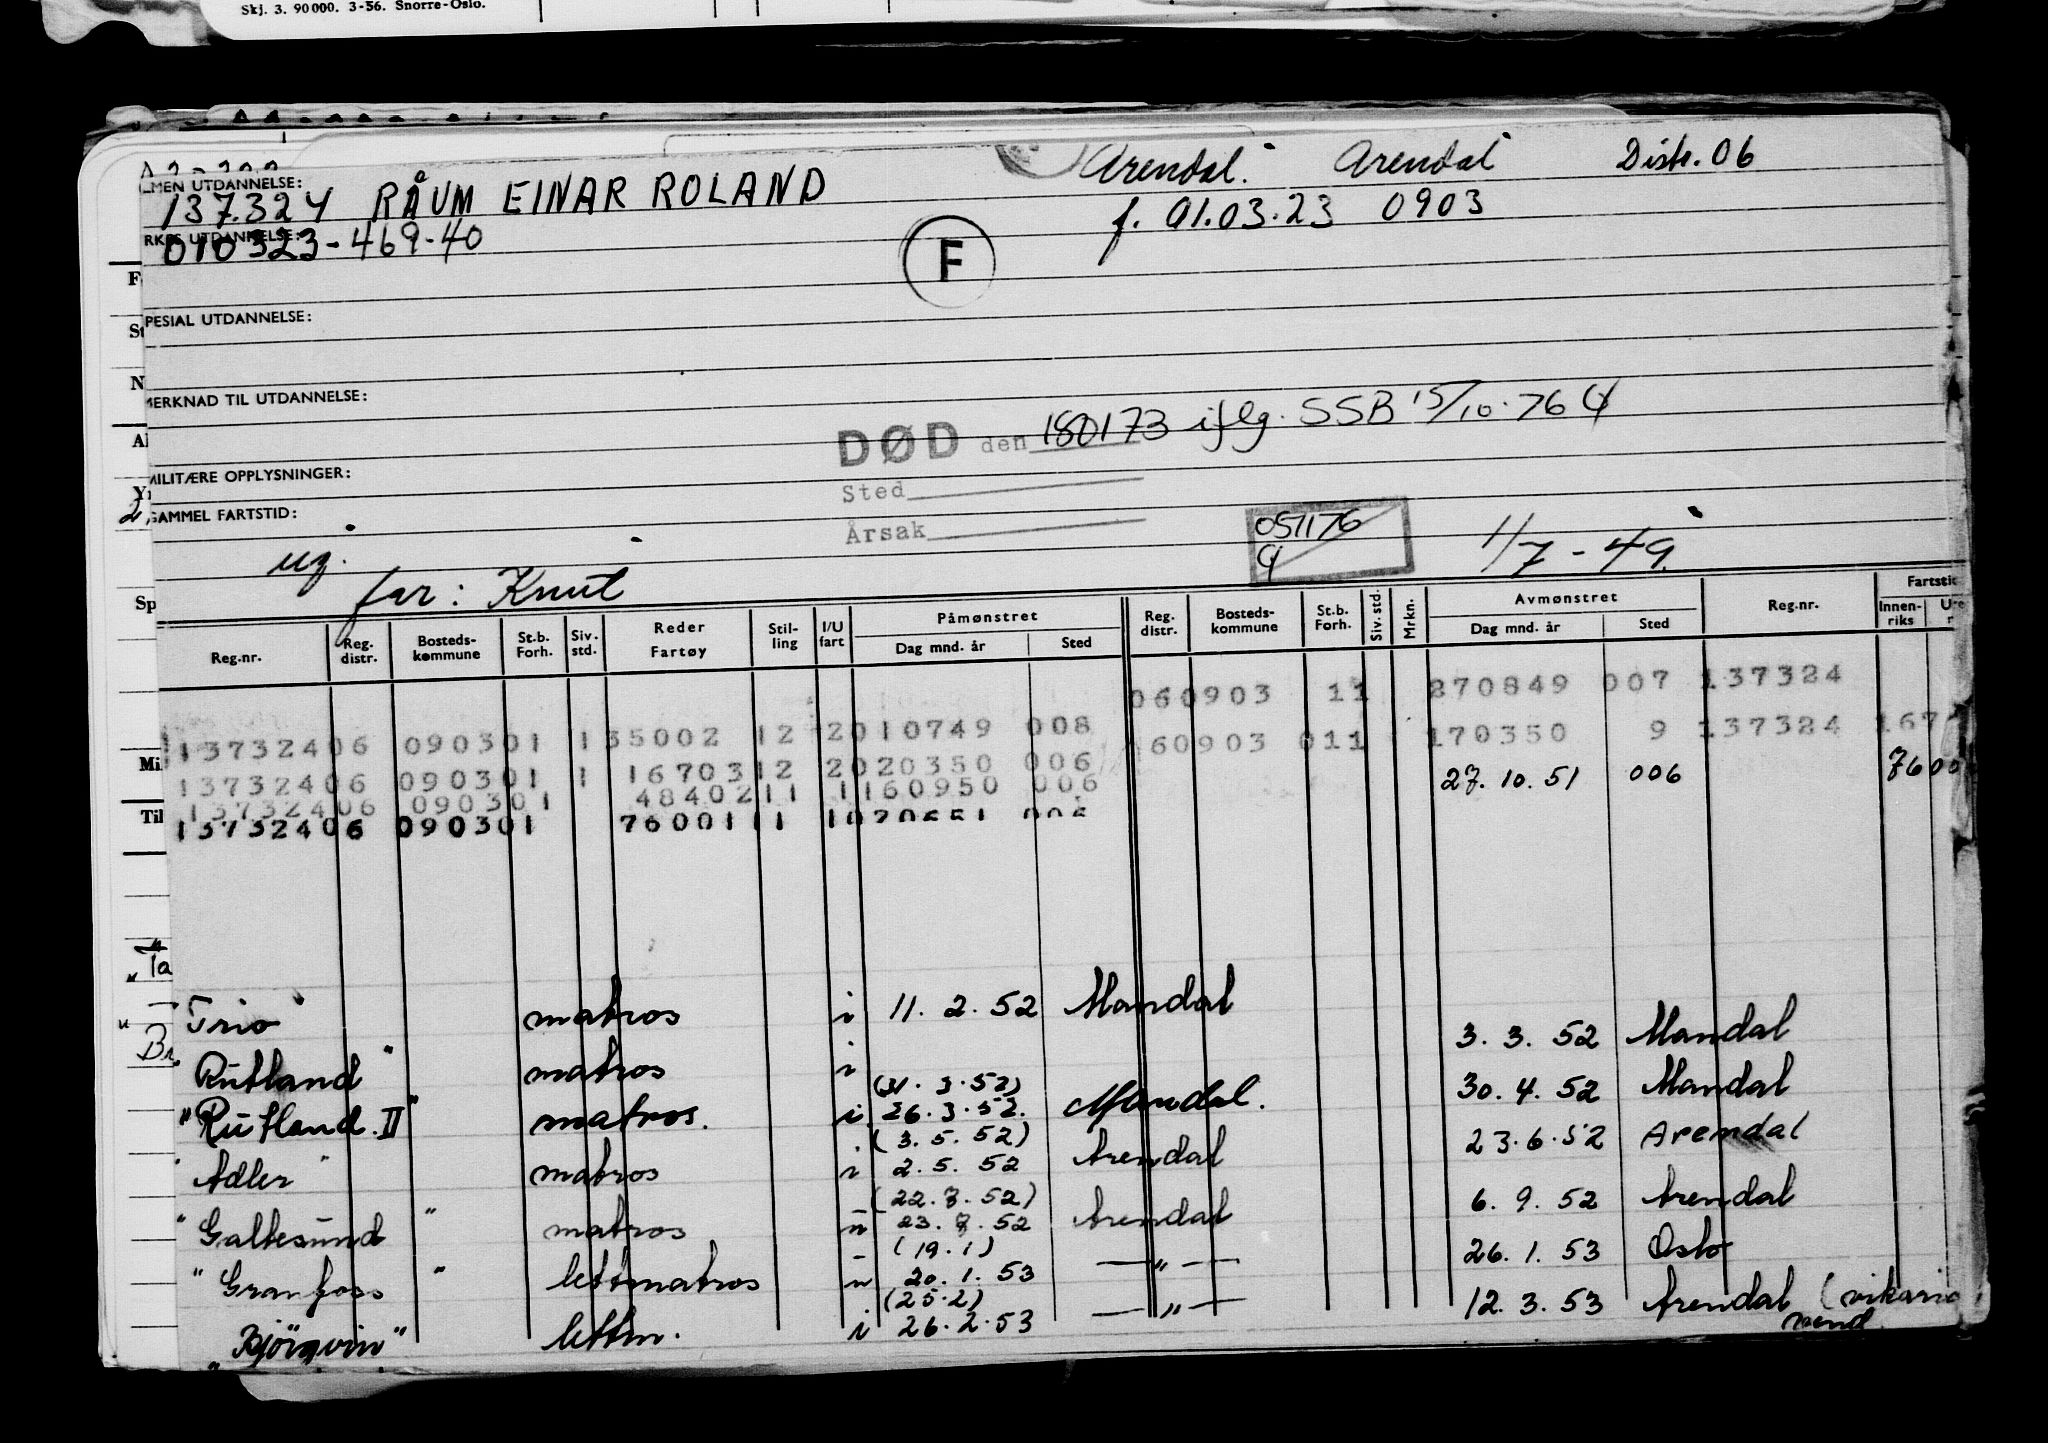 Skj. 3. 90000. 3-56. Snorre-Oslo.
Arendal. Arendal Distr. 06
LMEN UTDANNELSE:
137.324 RÅUM EINAR ROLAND
f. 01.03.23 0903
RKES UTDANNELSE:
010323-469-40
F
PESIAL UTDANNELSE:
MERKNAD TIL UTDANNELSE:
DØD den 180173 iflg. SSB 15/10-76
MILITÆRE OPPLYSNINGER:
Sted
GAMMEL FARTSTID:
Årsak
051176
1/7 - 49.
ug.
far: Knut
Reg.nr. Reg. distr. Bosteds-kommune St.b. Forh. Siv. std. Reder Fartøy Stil-ling I/U fart Påmønstret Dag mnd. år Sted Reg. distr. Bosteds-kommune St.b. Forh. Siv. std. Mrkn. Avmønstret Dag mnd. år Sted Reg.nr. Fartstid Innen-riks
060903 11 270849 007 137324
13732406 090301 135002 12 2010749 008 60903 011 170350 9 137324 167
13732406 090301 1 1670312 2020350 006 27.10.51 006 7600
13732406 090301 4840211 1160950 006
13732406 090301 7600111
"Trio" matros i 11. 2. 52 Mandal 3. 3. 52 Mandal
Rutland" matros i (31. 3. 52) 30. 4. 52 Mandal
"Rutland II" matros. i 26. 3. 52. Mandal. 23. 6. 52 Arendal
(3. 5. 52)
"Adler" matros i 2. 5. 52 Arendal 6. 9. 52 Arendal
"Galtesund" matros 52 Arendal 26. 1. 53 Oslo
(19. 1)
"Granfoss" lettmatros 20. 1. 53 — " — 12. 3. 53 Arendal
(25. 2)
"Björgvin" lettm. i 26. 2. 53 — " —